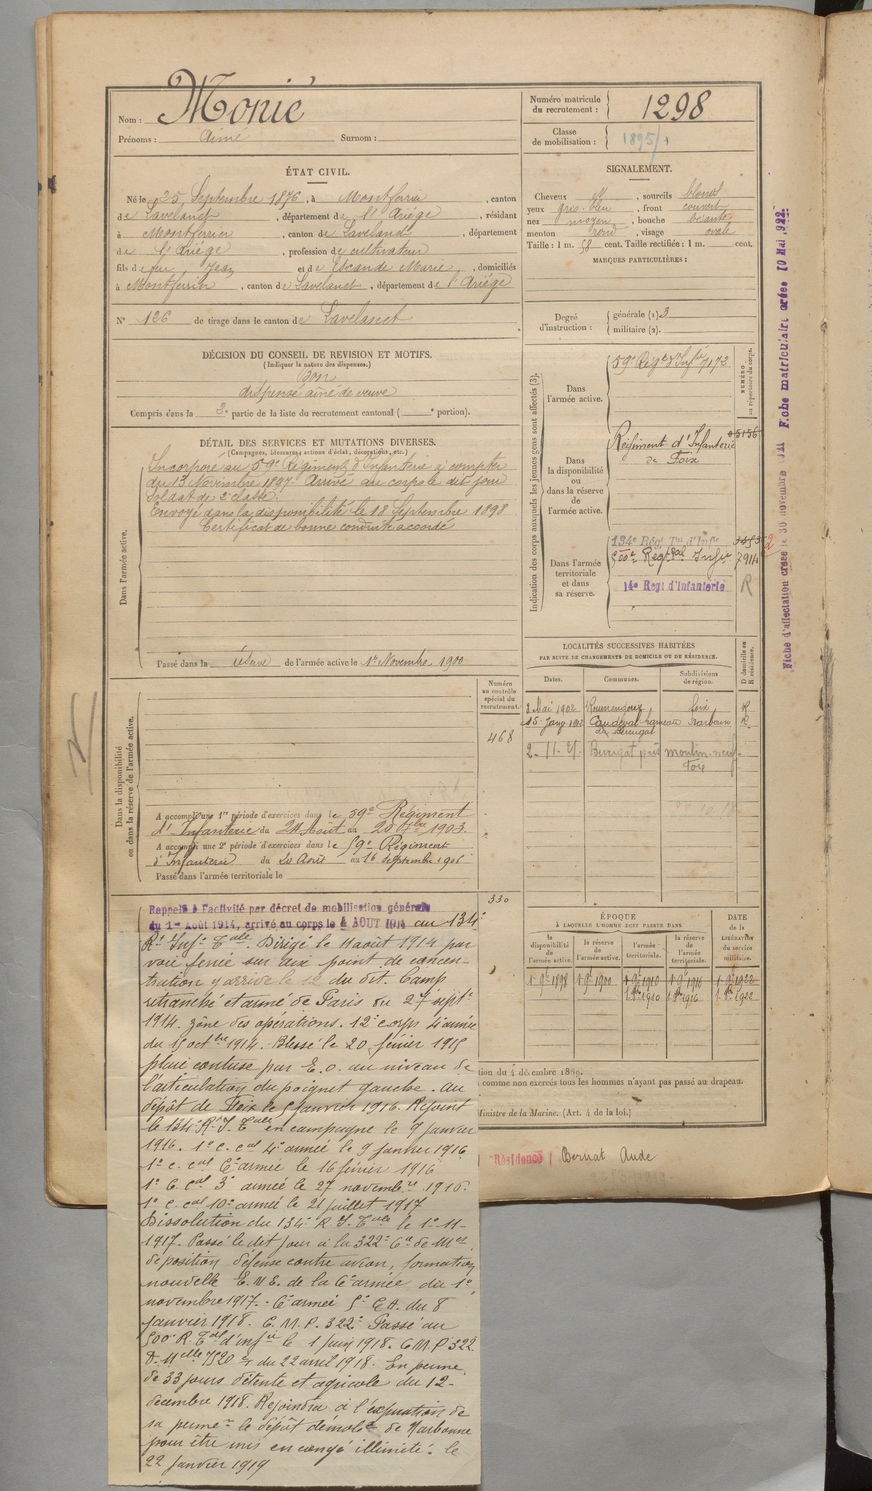 Nom : Monié
Prénoms : Aimé Surnom :
Numéro matricule du recrutement : 1298
Classe de mobilisation : 1895/
ÉTAT CIVIL.
Né le 25 Septembre 1876, à Montferrier, canton
de Lavelanet, département de l'Ariége, résidant
à Montferrier, canton de Lavelanet, département
de l'Ariége, profession de cultivateur
fils de feu Jean et de Escande Marie, domiciliés
à Montferrier, canton de Lavelanet, département de l'Ariége
N° 126 de tirage dans le canton de Lavelanet
SIGNALEMENT.
Cheveux, sourcils blonds
yeux gris-bleu, front couvert
nez moyen, bouche
menton rond, visage ovale
Taille : 1 m. 58 cent. Taille rectifiée : 1 m. cent.
MARQUES PARTICULIÈRES :
Degré d'instruction : générale (1) 3
militaire (2).
DÉCISION DU CONSEIL DE REVISION ET MOTIFS.
(Indiquer la nature des dispenses.)
Bon
dispensé ainé de veuve
Compris dans la 3e partie de la liste du recrutement cantonal ( e portion).
DÉTAIL DES SERVICES ET MUTATIONS DIVERSES.
(Campagnes, blessures, actions d'éclat, décorations, etc.)
Dans l'armée active.
Incorporé au 59e Régiment d'Infanterie à compter
du 13 Novembre 1897. Arrivé au corps le dit jour
Soldat de 2e classe.
Envoyé dans la disponibilité le 18 Septembre 1898
Certificat de bonne conduite accordé
Passé dans la réserve de l'armée active le 1er Novembre 1900
Indication des corps auxquels les jeunes gens sont affectés (3).
NUMÉRO au répertoire du corps.
Dans l'armée active.
59e Régt d'Infie 7172
Dans la disponibilité ou dans la réserve de l'armée active.
Régiment d'Infanterie
de Foix
Dans l'armée territoriale et dans sa réserve.
134e Rég. Tal d'Infie
500e Regt tal Infie 7914
14e Régt d'Infanterie R
Fiche d'affectation créée le 30 novembre 1921 Fiche matriculaire créée 10 Mai 1922.
LOCALITÉS SUCCESSIVES HABITÉES
PAR SUITE DE CHANGEMENTS DE DOMICILE OU DE RÉSIDENCE.
Dates. Communes. Subdivisions de région. D domicile ou R résidence.
2 Mai 1902 Roumengoux Foix R
15 Janv 1912 Caudeval hameau Narbonne R
Moulin neuf
Foix
Dans la disponibilité ou dans la réserve de l'armée active.
Numéro au contrôle spécial du recrutement.
468
A accompli une 1re période d'exercices dans le 59e Régiment
d'Infanterie du 24 Août au 20 7bre 1903.
A accompli une 2e période d'exercices dans le 59e Régiment
d'Infanterie du 20 Août au 16 Septembre 1906
Passé dans l'armée territoriale le
330
ÉPOQUE
À LAQUELLE L'HOMME DOIT PASSER DANS
DATE de la LIBÉRATION du service militaire.
la disponibilité de l'armée active. la réserve de l'armée active. l'armée territoriale. la réserve de l'armée territoriale.
1 9bre 1898 1 9bre 1900 1 9bre 1910 1 9bre 1916 1 9bre 1922
1 8bre 1910 1 8bre 1916 1 8bre 1922
tion du 4 décembre 1889.
comme non exercés tous les hommes n'ayant pas passé au drapeau.
Ministre de la Marine. (Art. 4 de la loi.)
Résidence Aude
Rappelé à l'activité par décret de mobilisation générale
du 1er Août 1914, arrivé au corps le 4 AOUT 1914 au 134e
Rt Infie Tale. Dirigé le 11 août 1914 par
voie ferrée sur Aix point de concen-
tration y arrive le 12 du dit. Camp
retranché et armé de Paris du 27 septe
1914. zône des opérations. 12e corps 4e armée
du 15 octbre 1914. Blessé le 20 février 1915
plaie contuse par E. O. au niveau de
l'articulation du poignet gauche. Au
dépôt de Foix le 5 janvier 1916. Rejoint
le 134e R. I. Tale en campagne le 9 janvier
1916. 1er c. cal 4e armée le 9 janvier 1916
1er c. cal 6e armée le 16 février 1916
1er C. cal 3e armée le 27 novembre 1916.
1er c. cal 10e armée le 21 juillet 1917
Dissolution du 134e R. I. Tale le 1-11-
1917. Passé le dit jour à la 322e Cie de Mses
de position défense contre avion, formation
nouvelle E. N. E. de la 6e armée du 1er
novembre 1917. - 6e armée 5e C.A. du 8
janvier 1918. C. M. P. 322e Passé au
500e R. Tal d'infie le 1 juin 1918. C.M.P. 322
D. Mlle 7520 du 22 avril 1918. En perme
de 33 jours détente et agricole du 12-
décembre 1918. Rejoindra à l'expiration de
sa perme le dépôt démobr de Narbonne
pour être mis en congé illimité. le
22 janvier 1919